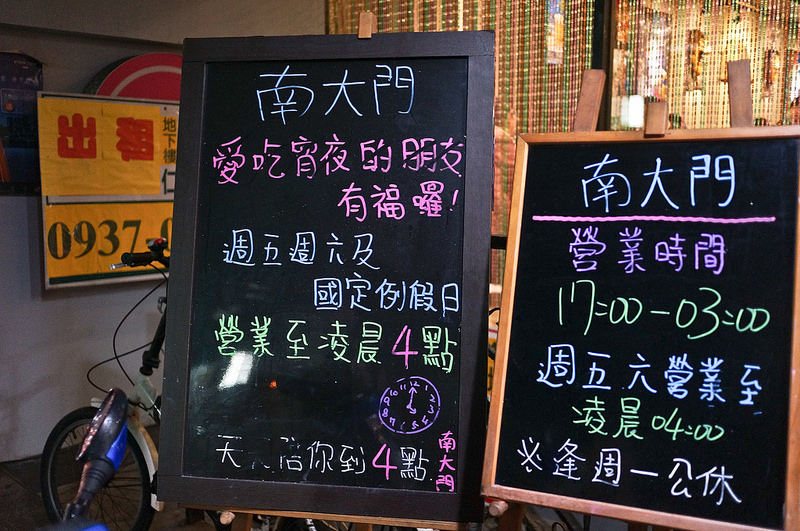 出租
地下樓
仁
0937
南大門
愛吃宵夜的朋友
有福囉!
週五週六及
國定例假日
營業至凌晨4點
天天陪你到4點
南大門
南大門
營業時間
17:00-03:00
週五六營業至
凌晨04:00
※逢週一公休